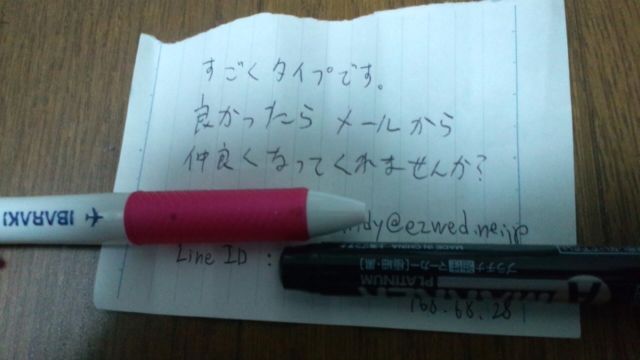 すごくタイプです。
良かったら メールから
仲良くなってくれませんか?
ndy@ezwed.ne.jp
Line ID :
168.68.28
IBARAKI
MADE IN CHINA
プラチナ
マーカー
PLATINUM